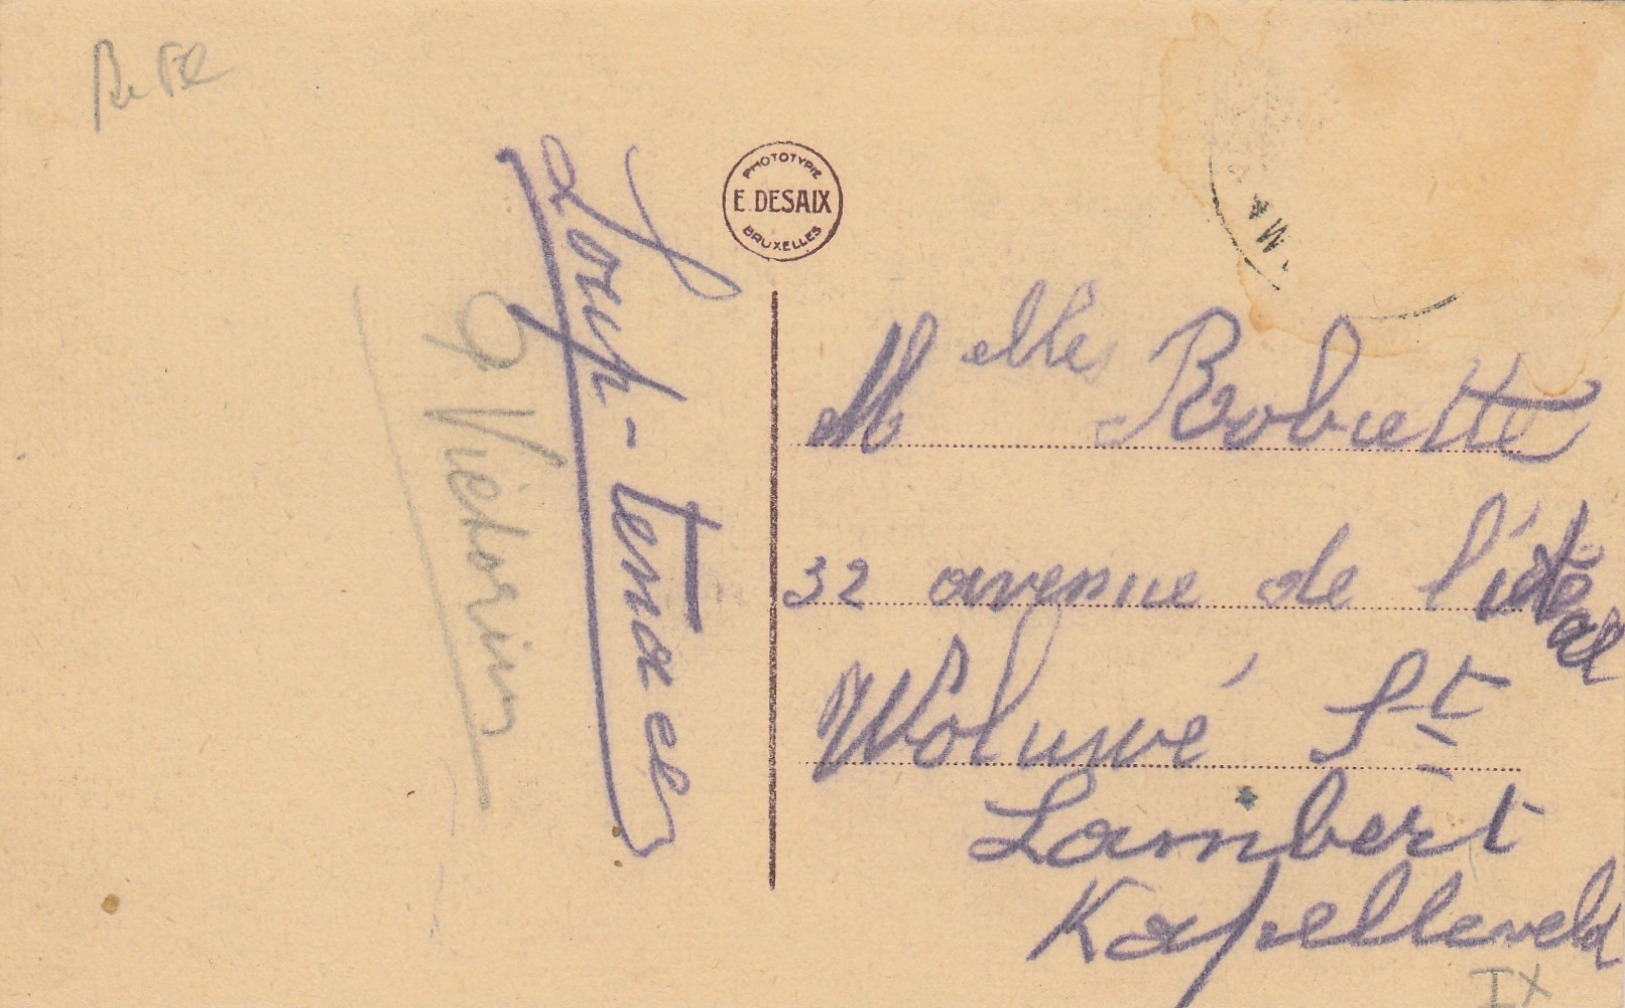 PHOTOTYPIE
E. DESAIX
BRUXELLES
Loup-tenace
Victorin
Melle Robiette
32 avenue de l'idéal
Woluwé St
Lambert
Kapelleveld
IX